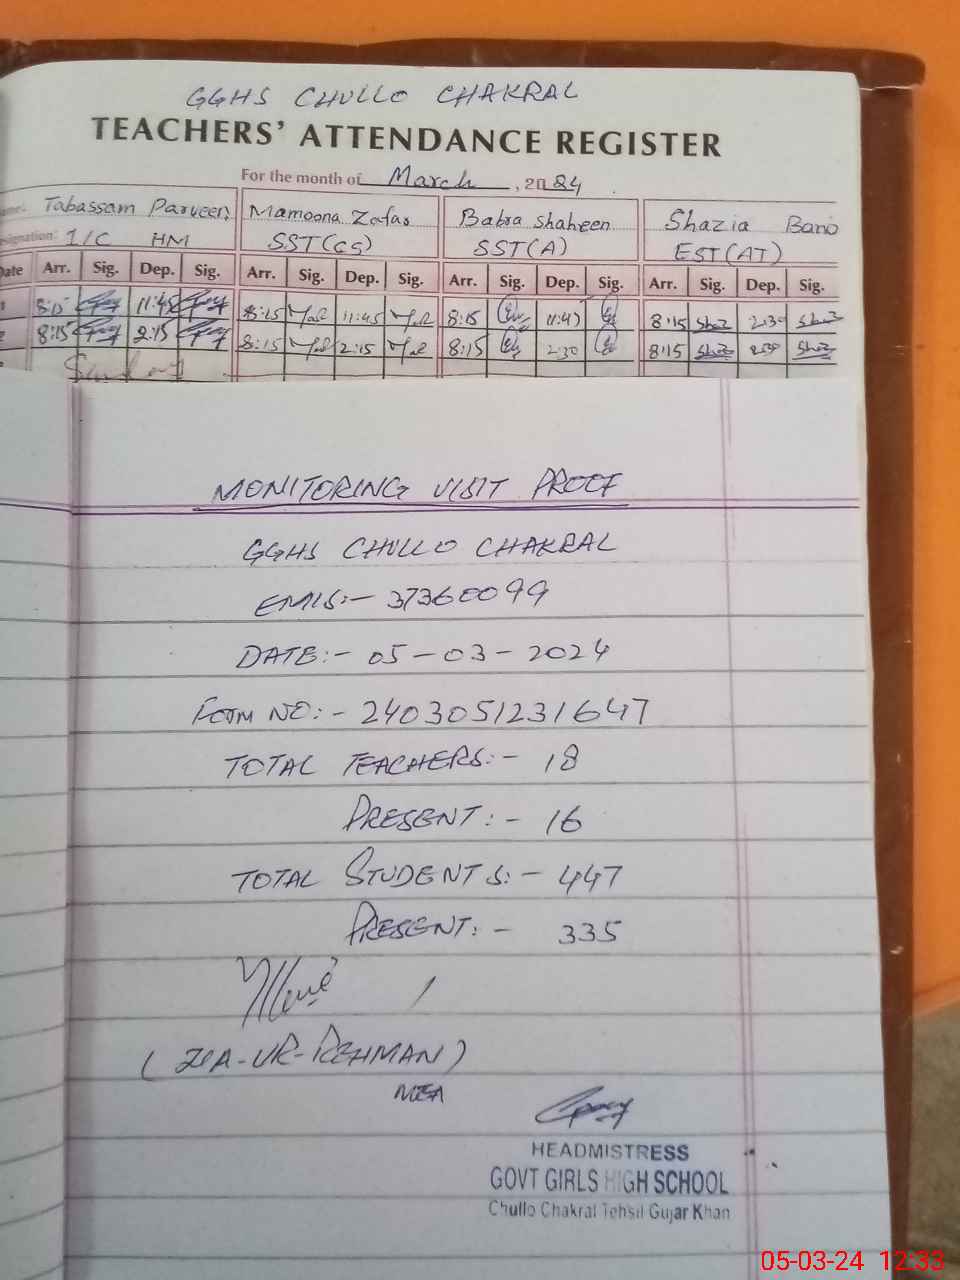 GGHS CHULLO CHAKRAL
TEACHERS' ATTENDANCE REGISTER
For the month of March, 2024
Name: Tabassam Parveen Mamoona Zafar Babra Shaheen Shazia Bano
Designation: I/C HM SST(CS) SST(A) EST(AT)
Date Arr. Sig. Dep. Sig. Arr. Sig. Dep. Sig. Arr. Sig. Dep. Sig. Arr. Sig. Dep. Sig.
1 8:15 11:45 8:15 11:45 8:15 11:45 8:15 Shaz 2:30 Shaz
2 8:15 2:15 8:15 2:15 8:15 2:30 8:15 Shaz 2:30 Shaz
Sunday
MONITORING VISIT PROOF
GGHS CHULLO CHAKRAL
EMIS:- 37360099
DATE:- 05-03-2024
FORM NO:- 2403051231647
TOTAL TEACHERS:- 18
PRESENT:- 16
TOTAL STUDENTS:- 447
PRESENT:- 335
(ZIA-UR-REHMAN)
MEA
HEADMISTRESS
GOVT GIRLS HIGH SCHOOL
Chullo Chakral Tehsil Gujar Khan
05-03-24 12:33